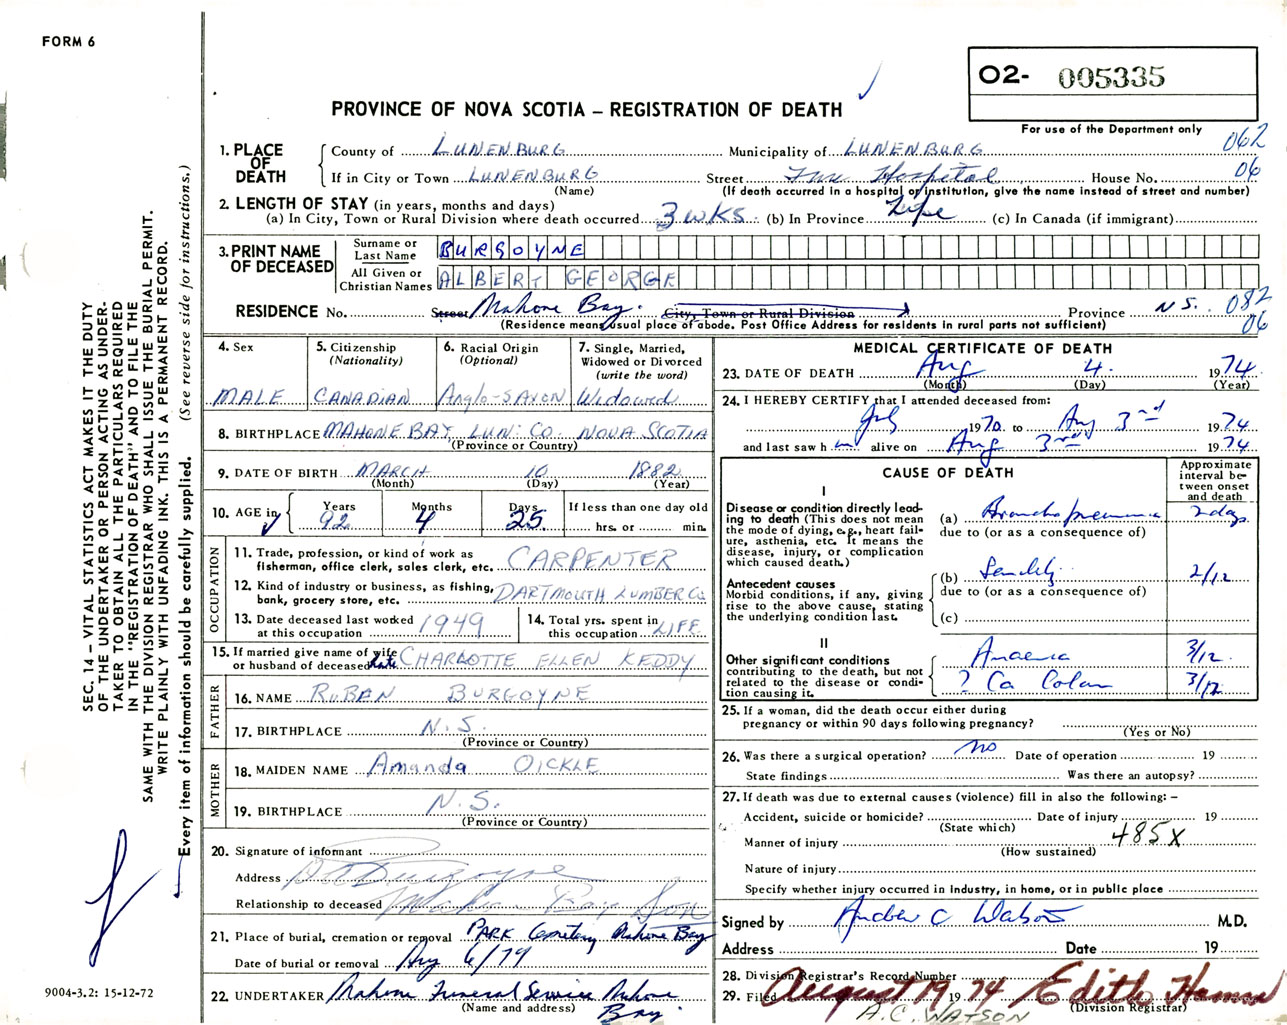 FORM 6
O2- 005335
PROVINCE OF NOVA SCOTIA – REGISTRATION OF DEATH
For use of the Department only
SEC. 14 – VITAL STATISTICS ACT MAKES IT THE DUTY
OF THE UNDERTAKER OR PERSON ACTING AS UNDER-
TAKER TO OBTAIN ALL THE PARTICULARS REQUIRED
IN THE "REGISTRATION OF DEATH" AND TO FILE THE
SAME WITH THE DIVISION REGISTRAR WHO SHALL ISSUE THE BURIAL PERMIT.
WRITE PLAINLY WITH UNFADING INK. THIS IS A PERMANENT RECORD.
Every item of information should be carefully supplied. (See reverse side for instructions.)
1. PLACE OF DEATH
County of LUNENBURG Municipality of LUNENBURG 062
If in City or Town LUNENBURG Street Hospital House No. 06
(Name) (If death occurred in a hospital or institution, give the name instead of street and number)
2. LENGTH OF STAY (in years, months and days)
(a) In City, Town or Rural Division where death occurred 3 WKS (b) In Province Life (c) In Canada (if immigrant)
3. PRINT NAME OF DECEASED
Surname or Last Name BURGOYNE
All Given or Christian Names ALBERT GEORGE
RESIDENCE No. Street Mahone Bay City, Town or Rural Division Province N.S. 082
(Residence means usual place of abode. Post Office Address for residents in rural parts not sufficient) 06
4. Sex MALE
5. Citizenship (Nationality) CANADIAN
6. Racial Origin (Optional) Anglo-SAXON
7. Single, Married, Widowed or Divorced (write the word) Widowed
8. BIRTHPLACE MAHONE BAY LUN. CO. NOVA SCOTIA
(Province or Country)
9. DATE OF BIRTH MARCH 10 1882
(Month) (Day) (Year)
10. AGE in Years 92 Months 4 Days 25 If less than one day old hrs. or min.
OCCUPATION
11. Trade, profession, or kind of work as
fisherman, office clerk, sales clerk, etc. CARPENTER
12. Kind of industry or business, as fishing,
bank, grocery store, etc. DARTMOUTH LUMBER Co
13. Date deceased last worked
at this occupation 1949
14. Total yrs. spent in
this occupation LIFE
15. If married give name of wife
or husband of deceased late CHARLOTTE ELLEN KEDDY
FATHER
16. NAME RUBEN BURGOYNE
17. BIRTHPLACE N.S.
(Province or Country)
MOTHER
18. MAIDEN NAME Amanda OICKLE
19. BIRTHPLACE N.S.
(Province or Country)
20. Signature of informant
Address Burgoyne
Relationship to deceased Mahone Bay Son
21. Place of burial, cremation or removal PARK Cemetery Mahone Bay
Date of burial or removal Aug 6/74
22. UNDERTAKER Mahone Funeral Service Mahone
(Name and address) Bay
MEDICAL CERTIFICATE OF DEATH
23. DATE OF DEATH Aug 4. 1974
(Month) (Day) (Year)
24. I HEREBY CERTIFY that I attended deceased from:
July 1970 to Aug 3rd 1974
and last saw h im alive on Aug 3rd 1974
CAUSE OF DEATH
Approximate interval between onset and death
I
Disease or condition directly lead-
ing to death (This does not mean
the mode of dying, e.g., heart fail-
ure, asthenia, etc. It means the
disease, injury, or complication
which caused death.)
(a) Bronchopneumonia 2 days
due to (or as a consequence of)
Antecedent causes
Morbid conditions, if any, giving
rise to the above cause, stating
the underlying condition last.
(b) Senility 2/12
due to (or as a consequence of)
(c)
II
Other significant conditions
contributing to the death, but not
related to the disease or condi-
tion causing it.
Anaemia 3/12
? Ca Colon 3/12
25. If a woman, did the death occur either during
pregnancy or within 90 days following pregnancy?
(Yes or No)
26. Was there a surgical operation? no Date of operation 19
State findings Was there an autopsy?
27. If death was due to external causes (violence) fill in also the following: –
Accident, suicide or homicide? Date of injury 19
(State which)
Manner of injury 485X
(How sustained)
Nature of injury
Specify whether injury occurred in industry, in home, or in public place
Signed by Andrew C Watson M.D.
Address Date 19
28. Division Registrar's Record Number
29. Filed August 19 1974 Edith
A.C. WATSON (Division Registrar)
9004-3.2: 15-12-72